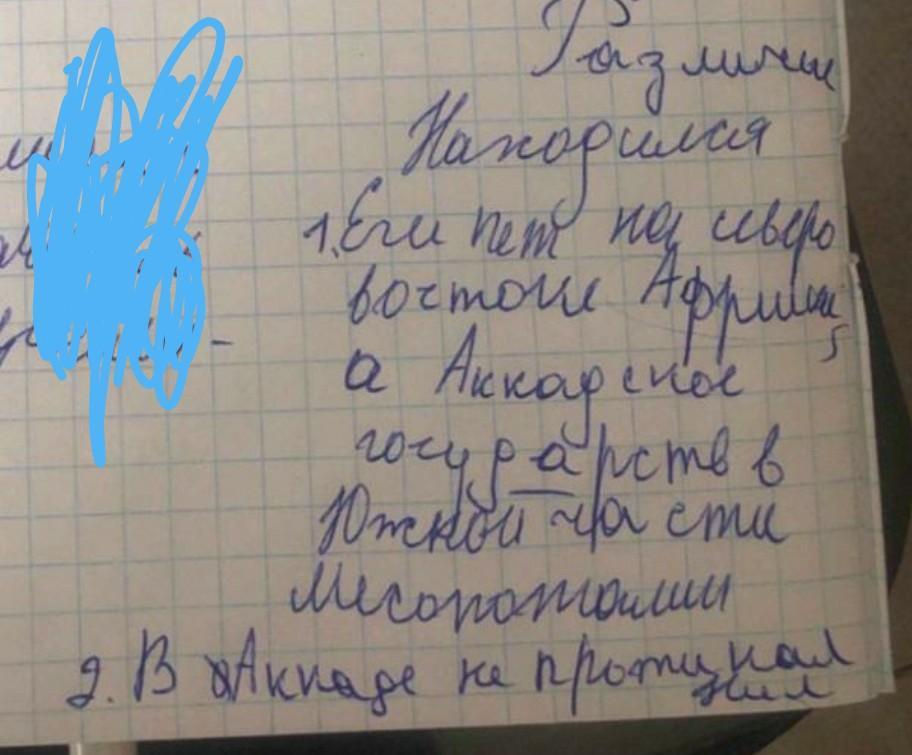 Различие
Находился
1. Египет на северо
востоке Африки,
а Аккадское
государств в
Южной части
Месопотамии
2. В Аккаде не протикал
Нил